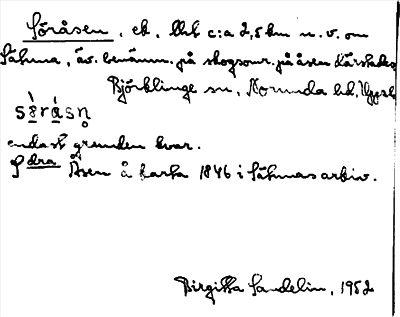 Söråsen, ek, blek c:a 2,5 km n.v. om
Sätuna, äv. benämn. på skogsomr. på åsen därstädes
Björklinge sn, Norunda hd, Uppsl
sèràsn̥
endast grunden kvar.
S dra Åsen å karta 1846 i Sätunas arkiv.
Birgitta Sandelin, 1952